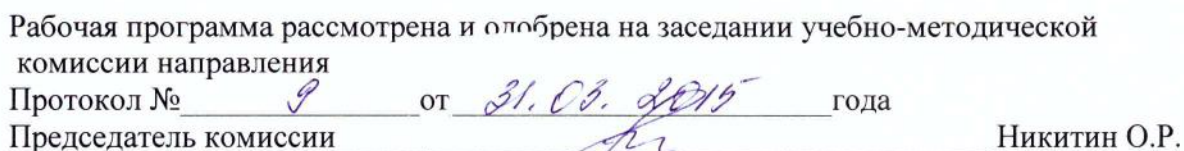 Рабочая программа рассмотрена и одобрена на заседании учебно-методической
комиссии направления
Протокол № 9 от 31.03.2015 года
Председатель комиссии Никитин О.Р.